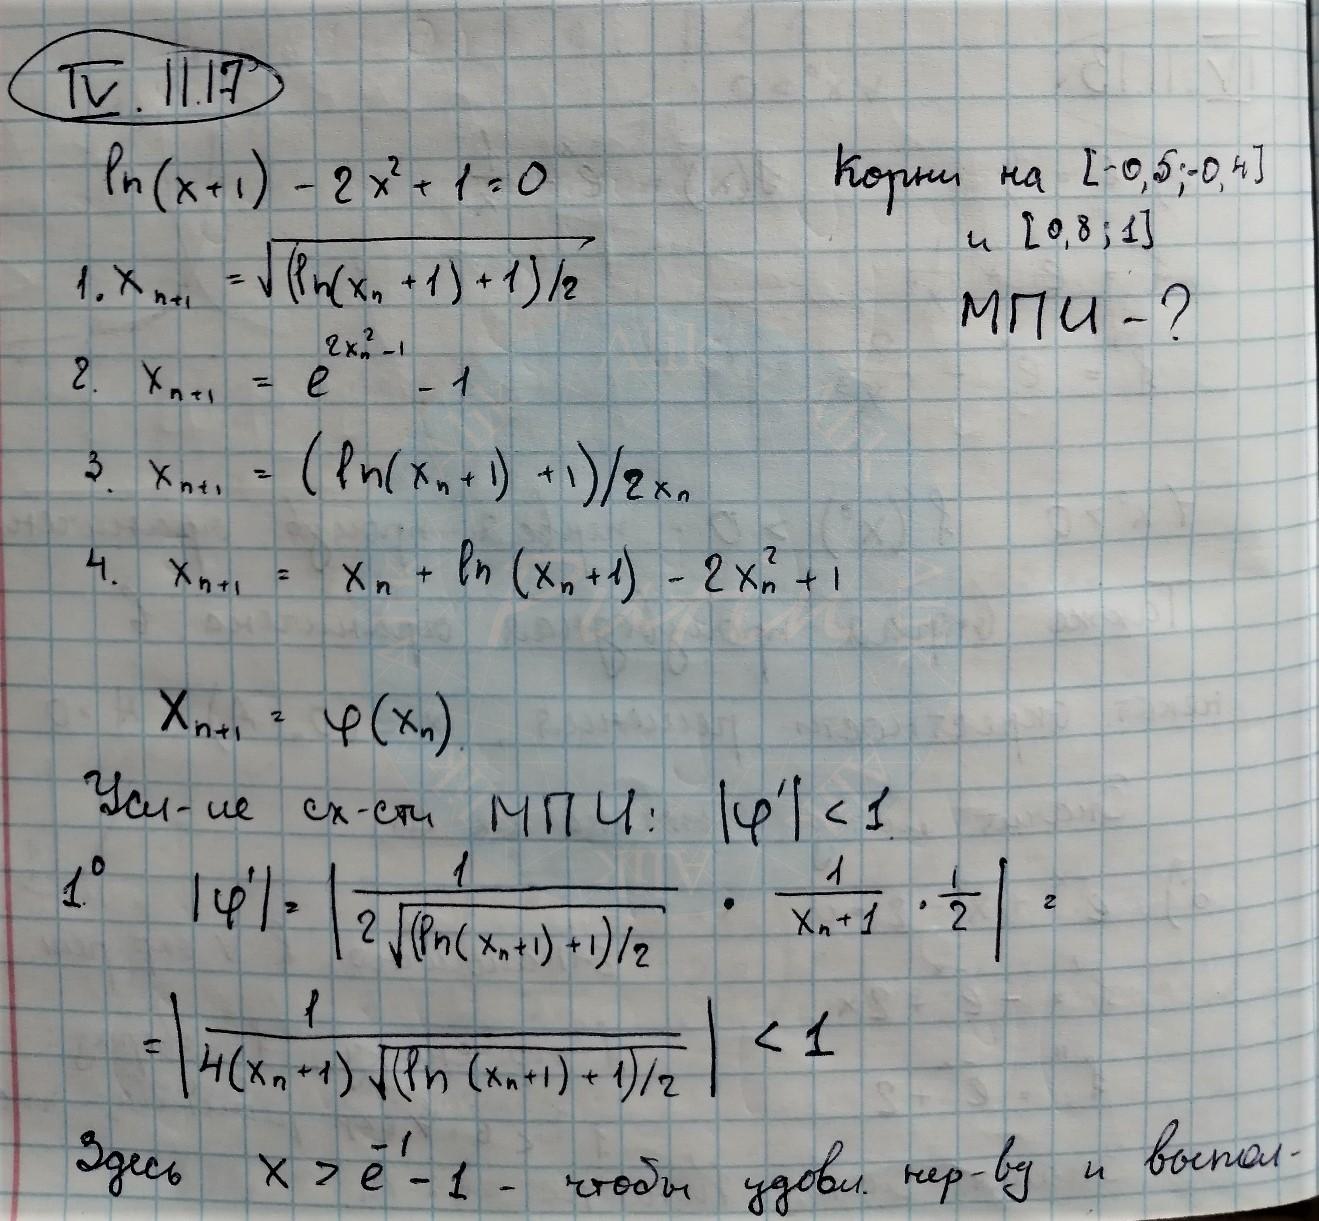 IV.11.17
ln(x+1) - 2x² + 1 = 0
Корни на [-0,5;-0,4]
и [0,8;1]
МПИ - ?
1. xₙ₊₁ = √((ln(xₙ+1)+1)/2)
2. xₙ₊₁ = e^(2xₙ²-1) - 1
3. xₙ₊₁ = (ln(xₙ+1)+1)/2xₙ
4. xₙ₊₁ = xₙ + ln(xₙ+1) - 2xₙ² + 1
Xₙ₊₁ = φ(xₙ)
Усл-ие сх-сти МПИ: |φ'| < 1
1.° |φ'| = | 1/(2√((ln(xₙ+1)+1)/2)) · 1/(xₙ+1) · 1/2 | =
= | 1/(4(xₙ+1)√((ln(xₙ+1)+1)/2)) | < 1
Здесь x > e⁻¹ - 1 - чтобы удовл. нер-ву и выпол-